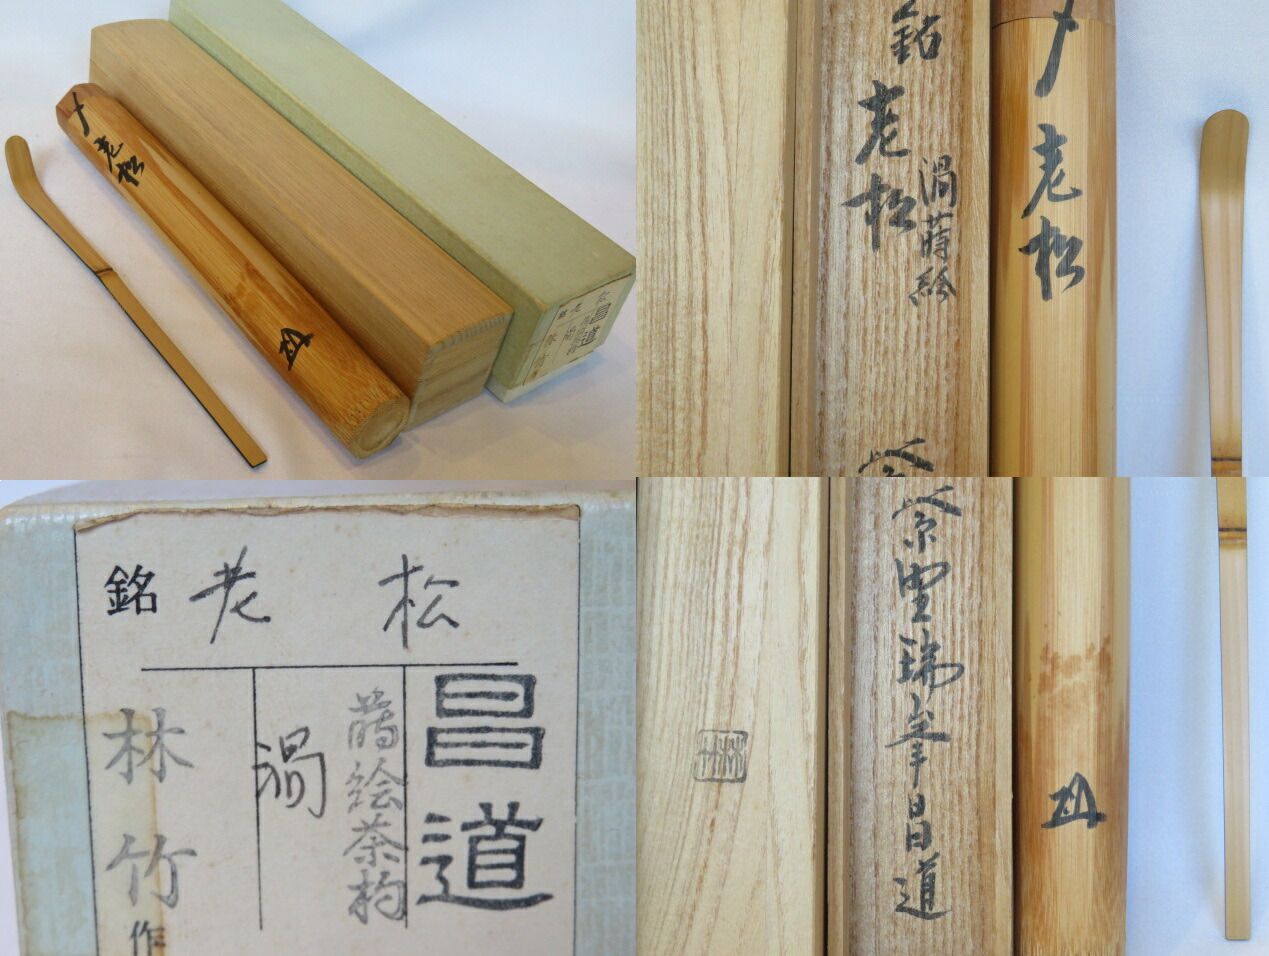 〆
老松
銘
老松
渦蒔絵
〆
老松
銘 老 松
昌道
蒔絵茶杓
渦
林竹作
紫野瑞峯昌道